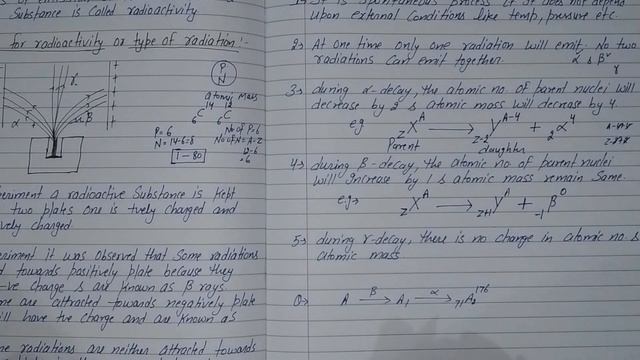 Substance is called radioactivity
for radioactivity or type of radiation:-
P
N
Atomic Mass
14 12
C C
6 6
P=6 No of P=6
N=14-6=8 No of N=A-Z
12-6
=6
I-80
α γ β
a radioactive Substance is kept
two plates one is +vely charged and
vely charged.
it was observed that some radiations
towards positively plate because they
-ve charge & are known as β rays.
are attracted towards negatively plate
will have +ve charge and are known as
radiations are neither attracted towards
upon external conditions like temp, pressure etc.
2→ At one time only one radiation will emit. No two
radiations can emit together. α & β γ
γ
3→ during α-decay, the atomic no. of parent nuclei will
decrease by 2 & atomic mass will decrease by 4.
eg zX^A → z-2Y^A-4 + 2α^4
Parent daughter
4→ during β-decay, the atomic no. of parent nuclei
will increase by 1 & atomic mass remain same.
eg→ zX^A → z+1Y^A + -1β^0
5→ during γ-decay, there is no change in atomic no. &
atomic mass
Q→ A →β A1 →α 71A2^176